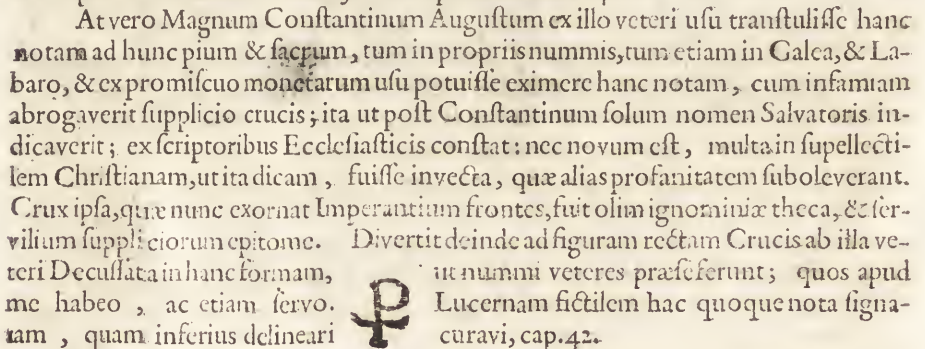 At vero Magnum Conſtantinum Auguſtum ex illo veteri uſu tranſtuliſſe hanc
notam ad hunc pium & ſacrum, tum in propriis nummis, tum etiam in Galea, & La-
baro, & ex promiſcuo monetarum uſu potuiſſe eximere hanc notam, cum infamiam
abrogaverit ſupplicio crucis; ita ut poſt Conſtantinum ſolum nomen Salvatoris in-
dicaverit; ex ſcriptoribus Eccleſiaſticis conſtat: nec novum eſt, multa in ſupellecti-
lem Chriſtianam, ut ita dicam, fuiſſe invecta, quæ alias profanitatem ſuboleverant.
Crux ipſa, quæ nunc exornat Imperantium frontes, fuit olim ignominiæ theca, & ſer-
vilium ſuppliciorum epitome. Divertit deinde ad figuram rectam Crucis ab illa ve-
teri Decuſſata in hanc formam, ut nummi veteres præſeferunt; quos apud
me habeo, ac etiam ſervo. Lucernam fictilem hac quoque nota ſigna-
tam, quam inferius delineari curavi, cap. 42.